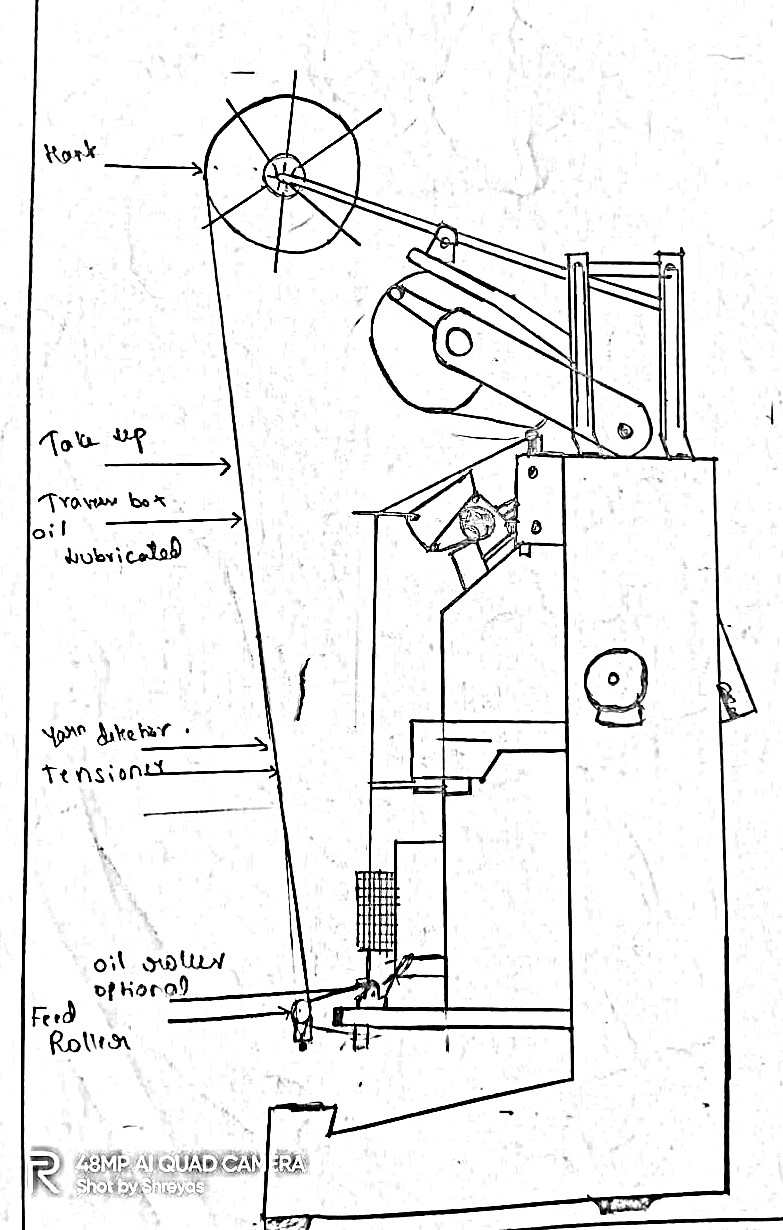 Hank
Take up
Travers box
oil
Lubricated
Yarn detektor.
Tensioner
oil roller
optional
Feed
Roller
48MP AI QUAD CAMERA
Shot by Shreyas